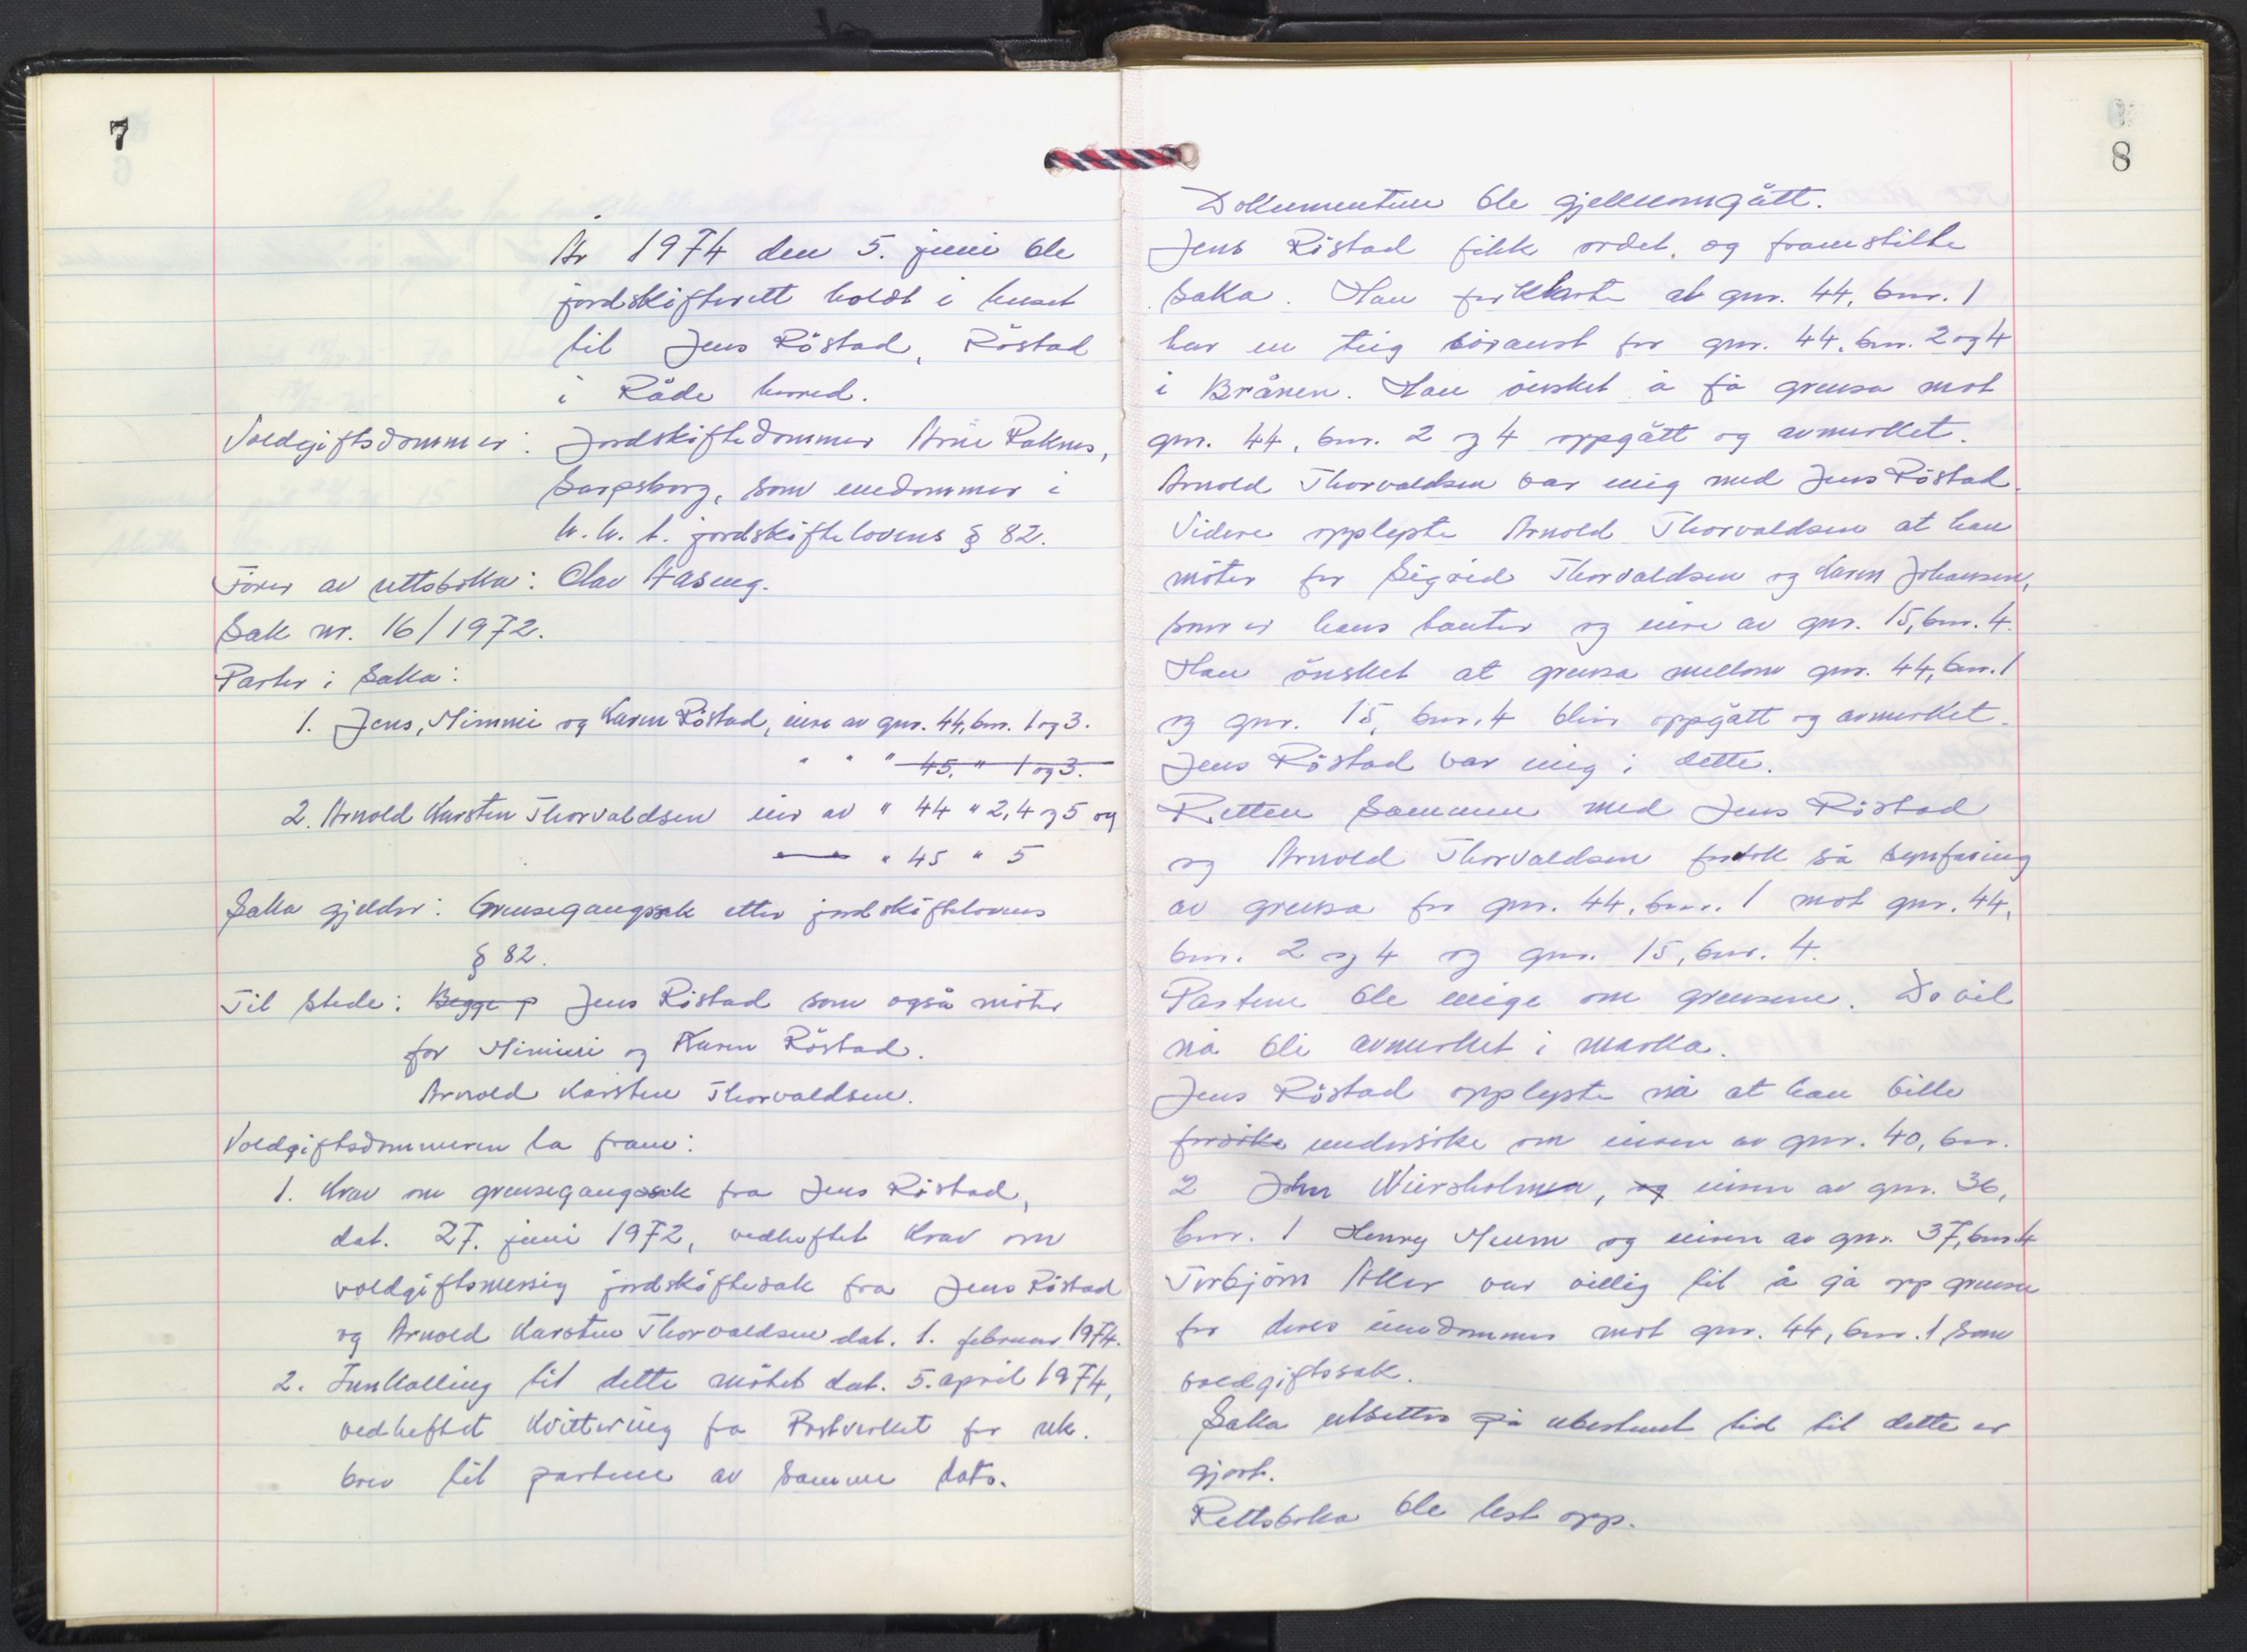 7
År 1974 den 5. juni ble
jordskifterett holdt i huset
til Jens Röstad, Röstad
i Råde herred.
Voldgiftsdommer: Jordskiftedommer Arne Raknes,
Sarpsborg, som enedommer i
h.h.t. jordskiftelovens § 82.
Förer av rettsboka: Olav Haseng.
Sak nr. 16/1972.
Parter i saka:
1. Jens, Mimmi og Karen Röstad, eire av gnr. 44, bnr. 1 og 3.
" " " 45, " 1 og 3.
2. Arnold Karsten Thorvaldsen eier av " 44 " 2, 4 og 5 og
" 45 " 5
Saka gjelder: Grensegangssak etter jordskiftelovens
§ 82.
Til stede: Begge p Jens Röstad som også möter
for Mimmi og Karen Röstad.
Arnold Karsten Thorvaldsen.
Voldgiftsdommeren la fram:
1. Krav om grensegangssak fra Jens Röstad,
dat. 27. juni 1972, vedheftet krav om
voldgiftsmessig jordskiftesak fra Jens Röstad
og Arnold Karsten Thorvaldsen dat. 1. februar 1974.
2. Innkalling til dette mötet dat. 5. april 1974,
vedheftet kvittering fra Postverket for rek.
brev til partene av samme dato.
8
Dokumentene ble gjennomgått.
Jens Röstad fikk ordet, og framstilte
saka. Han forklarte at gnr. 44, bnr. 1
har en teig söraust for gnr. 44, bnr. 2 og 4
i Brånen. Han önsket å få grensa mot
gnr. 44, bnr. 2 og 4 oppgått og avmerket.
Arnold Thorvaldsen var enig med Jens Röstad.
Videre opplyste Arnold Thorvaldsen at han
möter for Sigrid Thorvaldsen og Karen Johansen,
som er hans tanter og eiere av gnr. 15, bnr. 4.
Han önsket at grensa mellom gnr. 44, bnr. 1
og gnr. 15, bnr. 4 blir oppgått og avmerket.
Jens Röstad var enig i dette.
Retten sammen med Jens Röstad
og Arnold Thorvaldsen foretok så synfaring
av grensa for gnr. 44, bnr. 1 mot gnr. 44,
bnr. 2 og 4 og gnr. 15, bnr. 4.
Partene ble enige om grensene. De vil
nå bli avmerket i marka.
Jens Röstad opplyste nå at han ville
forsöke undersöke om eieren av gnr. 40, bnr.
2 John Wiersholmen, og eieren av gnr. 36,
bnr. 1 Henry Meum og eieren av gnr. 37, bnr. 4
Torbjörn Aker var villig til å gå opp grensene
for deres eiendommer mot gnr. 44, bnr. 1 som
voldgiftssak.
Saka utsettes på ubestemt tid til dette er
gjort.
Rettsboka ble lest opp.